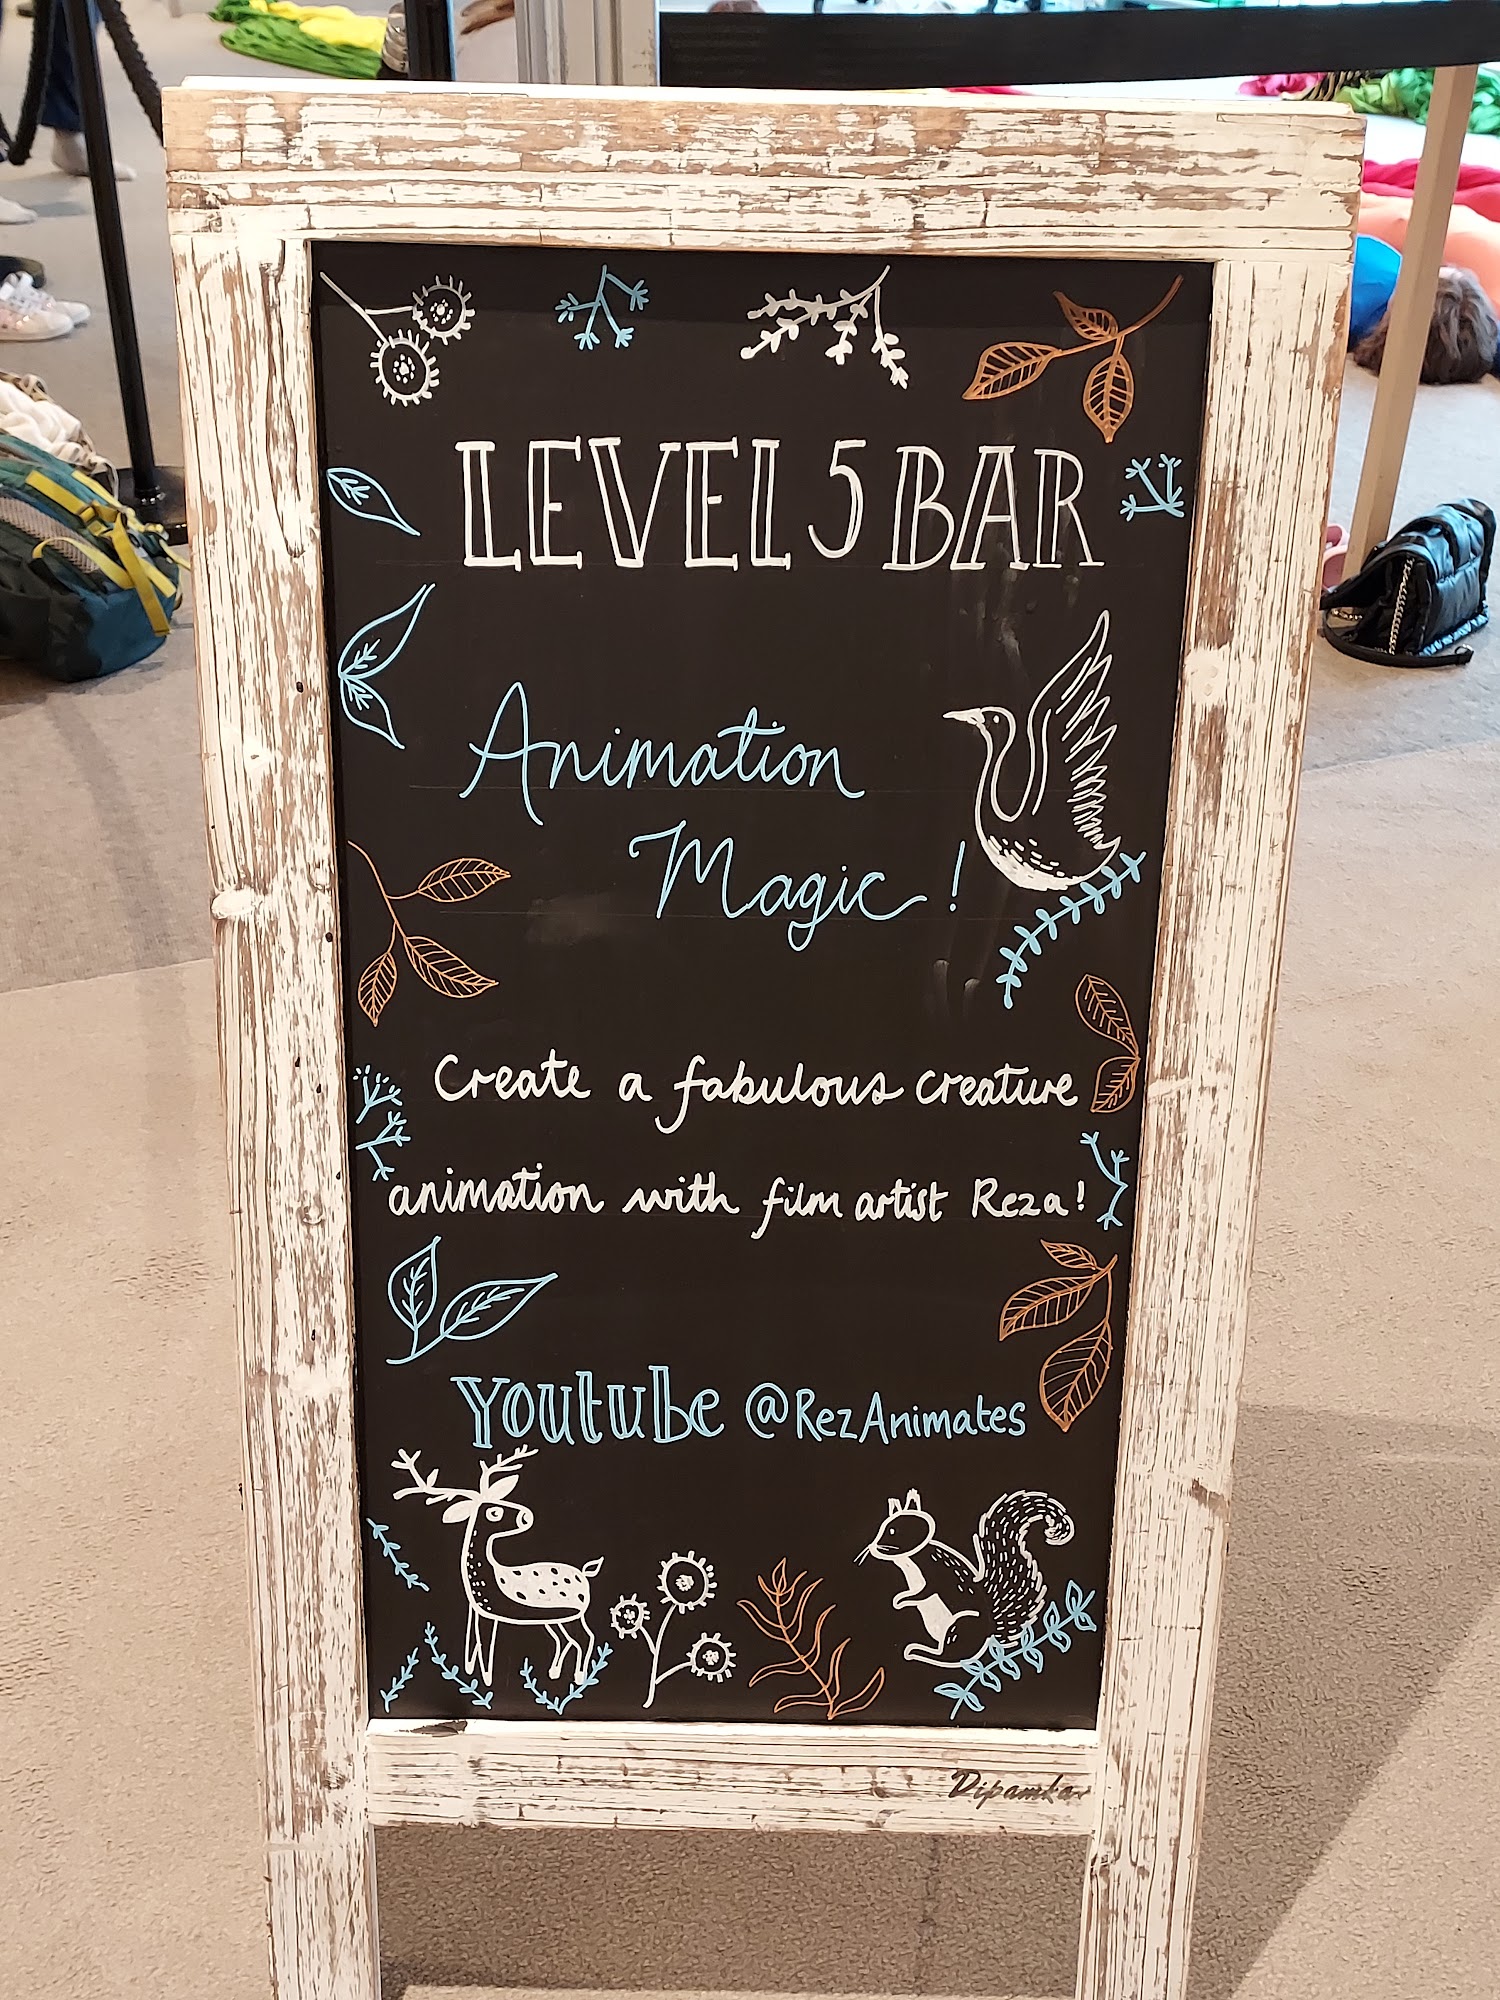 LEVEL 5 BAR
Animation
Magic!
Create a fabulous creature
animation with film artist Reza!
Youtube @RezAnimates
Dipamkar